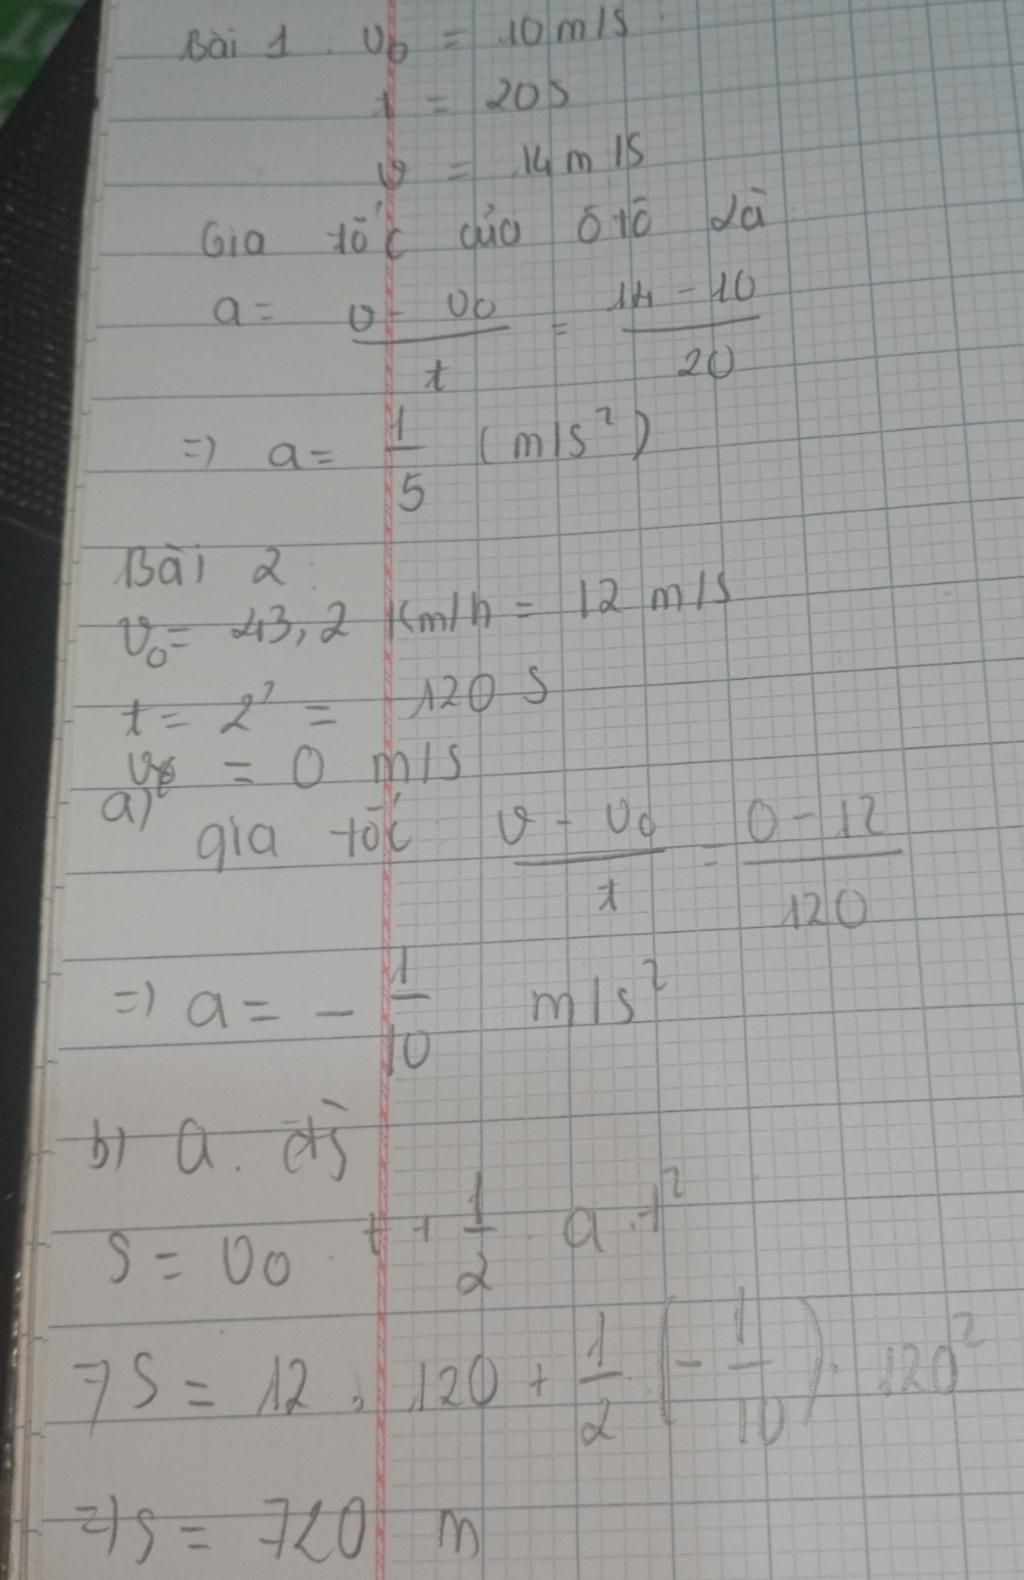 Bài 1. v0 = 10 m/s
t = 20s
v = 14 m/s
Gia tốc của ôtô là
a = (v - v0)/t = (14 - 10)/20
=> a = 1/5 (m/s²)
Bài 2:
v0 = 43,2 Km/h = 12 m/s
t = 2' = 120 s
v = 0 m/s
a) gia tốc (v - v0)/t = (0 - 12)/120
=> a = - 1/10 m/s²
b)
S = v0 . t + 1/2 . a . t²
=> S = 12 . 120 + 1/2 . (- 1/10) . 120²
=> S = 720 m